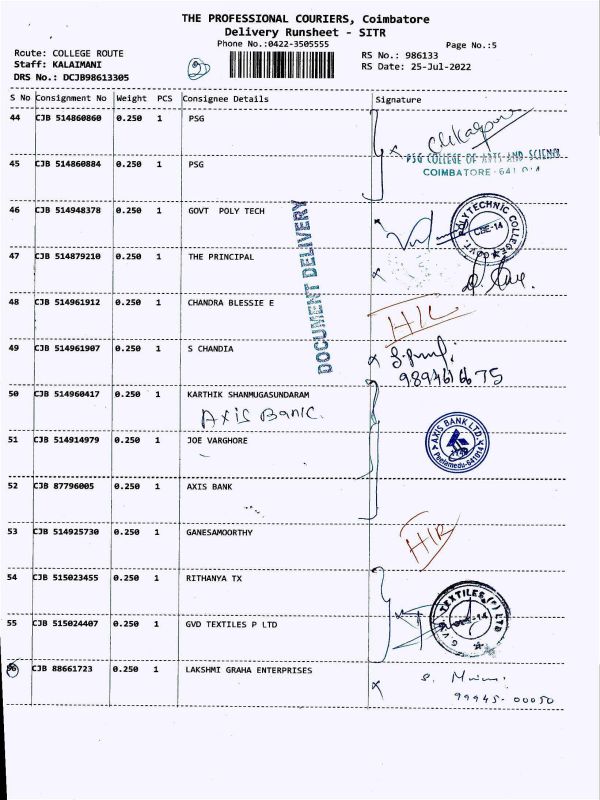 THE PROFESSIONAL COURIERS, Coimbatore
Delivery Runsheet - SITR
Phone No.:0422-3505555
Page No.:5
Route: COLLEGE ROUTE
RS No.: 986133
Staff: KALAIMANI
RS Date: 25-Jul-2022
DRS No.: DCJB98613305
S No Consignment No Weight PCS Consignee Details Signature
44 CJB 514860860 0.250 1 PSG
PSG COLLEGE OF ARTS AND SCIENCE
COIMBATORE - 641 014
45 CJB 514860884 0.250 1 PSG
46 CJB 514948378 0.250 1 GOVT POLY TECH
GOVT. POLYTECHNIC COLLEGE
CBE-14
47 CJB 514879210 0.250 1 THE PRINCIPAL
DOCUMENT DELIVERY
48 CJB 514961912 0.250 1 CHANDRA BLESSIE E
49 CJB 514961907 0.250 1 S CHANDIA
50 CJB 514960417 0.250 1 KARTHIK SHANMUGASUNDARAM
Axis Bank.
51 CJB 514914979 0.250 1 JOE VARGHORE
AXIS BANK LTD.
Peelamedu-641014
52 CJB 87796005 0.250 1 AXIS BANK
53 CJB 514925730 0.250 1 GANESAMOORTHY
54 CJB 515023455 0.250 1 RITHANYA TX
G.V.D. TEXTILES (P) LTD
CBE-14
55 CJB 515024407 0.250 1 GVD TEXTILES P LTD
56 CJB 88661723 0.250 1 LAKSHMI GRAHA ENTERPRISES
99945-00050